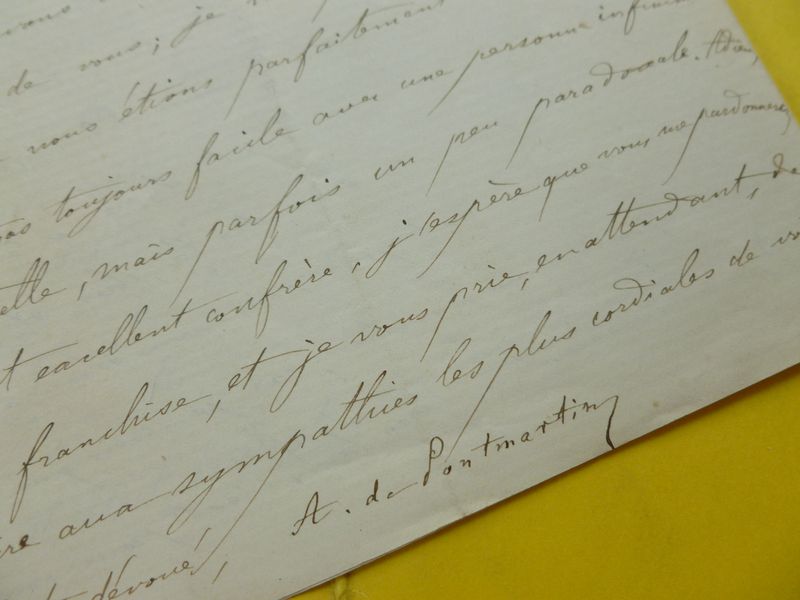 de vous; je
nous étions parfaitement
toujours facile avec une personne
, mais parfois un peu paradoxale. Adieu,
excellent confrère, j'espère que vous me pardonnerez
franchise, et je vous prie, en attendant, de
aux sympathies les plus cordiales de
dévoué,
A. de Pontmartin